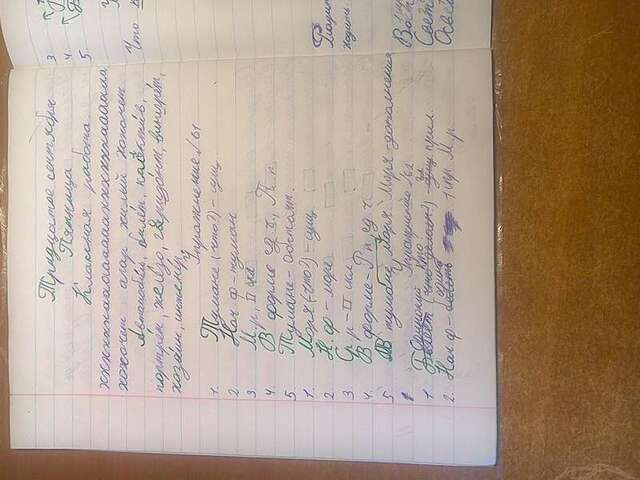 Тридцатое сентября
Пятница
Классная работа.
хххххххаааааааааахххххххааааааа
хохочет агар жилый хохочет
Автомобиль, билет, коллектив,
портрет, железо, горизонт, винегрет,
хозяин, инженер.
Упражнение №61
1. Тумане (что?) - сущ.
2 Нач. ф - туман
3. М.р, II скл
4 В форме ед.ч., П.п.
5 Тумане - обстоят.
1. Моря (что?) - сущ
2 Н. ф - море
3. Ср.р - II скл.
4. В форме - Р.п, ед.ч.
5 В тумане моря. Моря - дополнение
Упражнение №62
Одинокий
1. прил.
2. Нач. ф - М.р
3
4
5.
Что
ходить
Свет